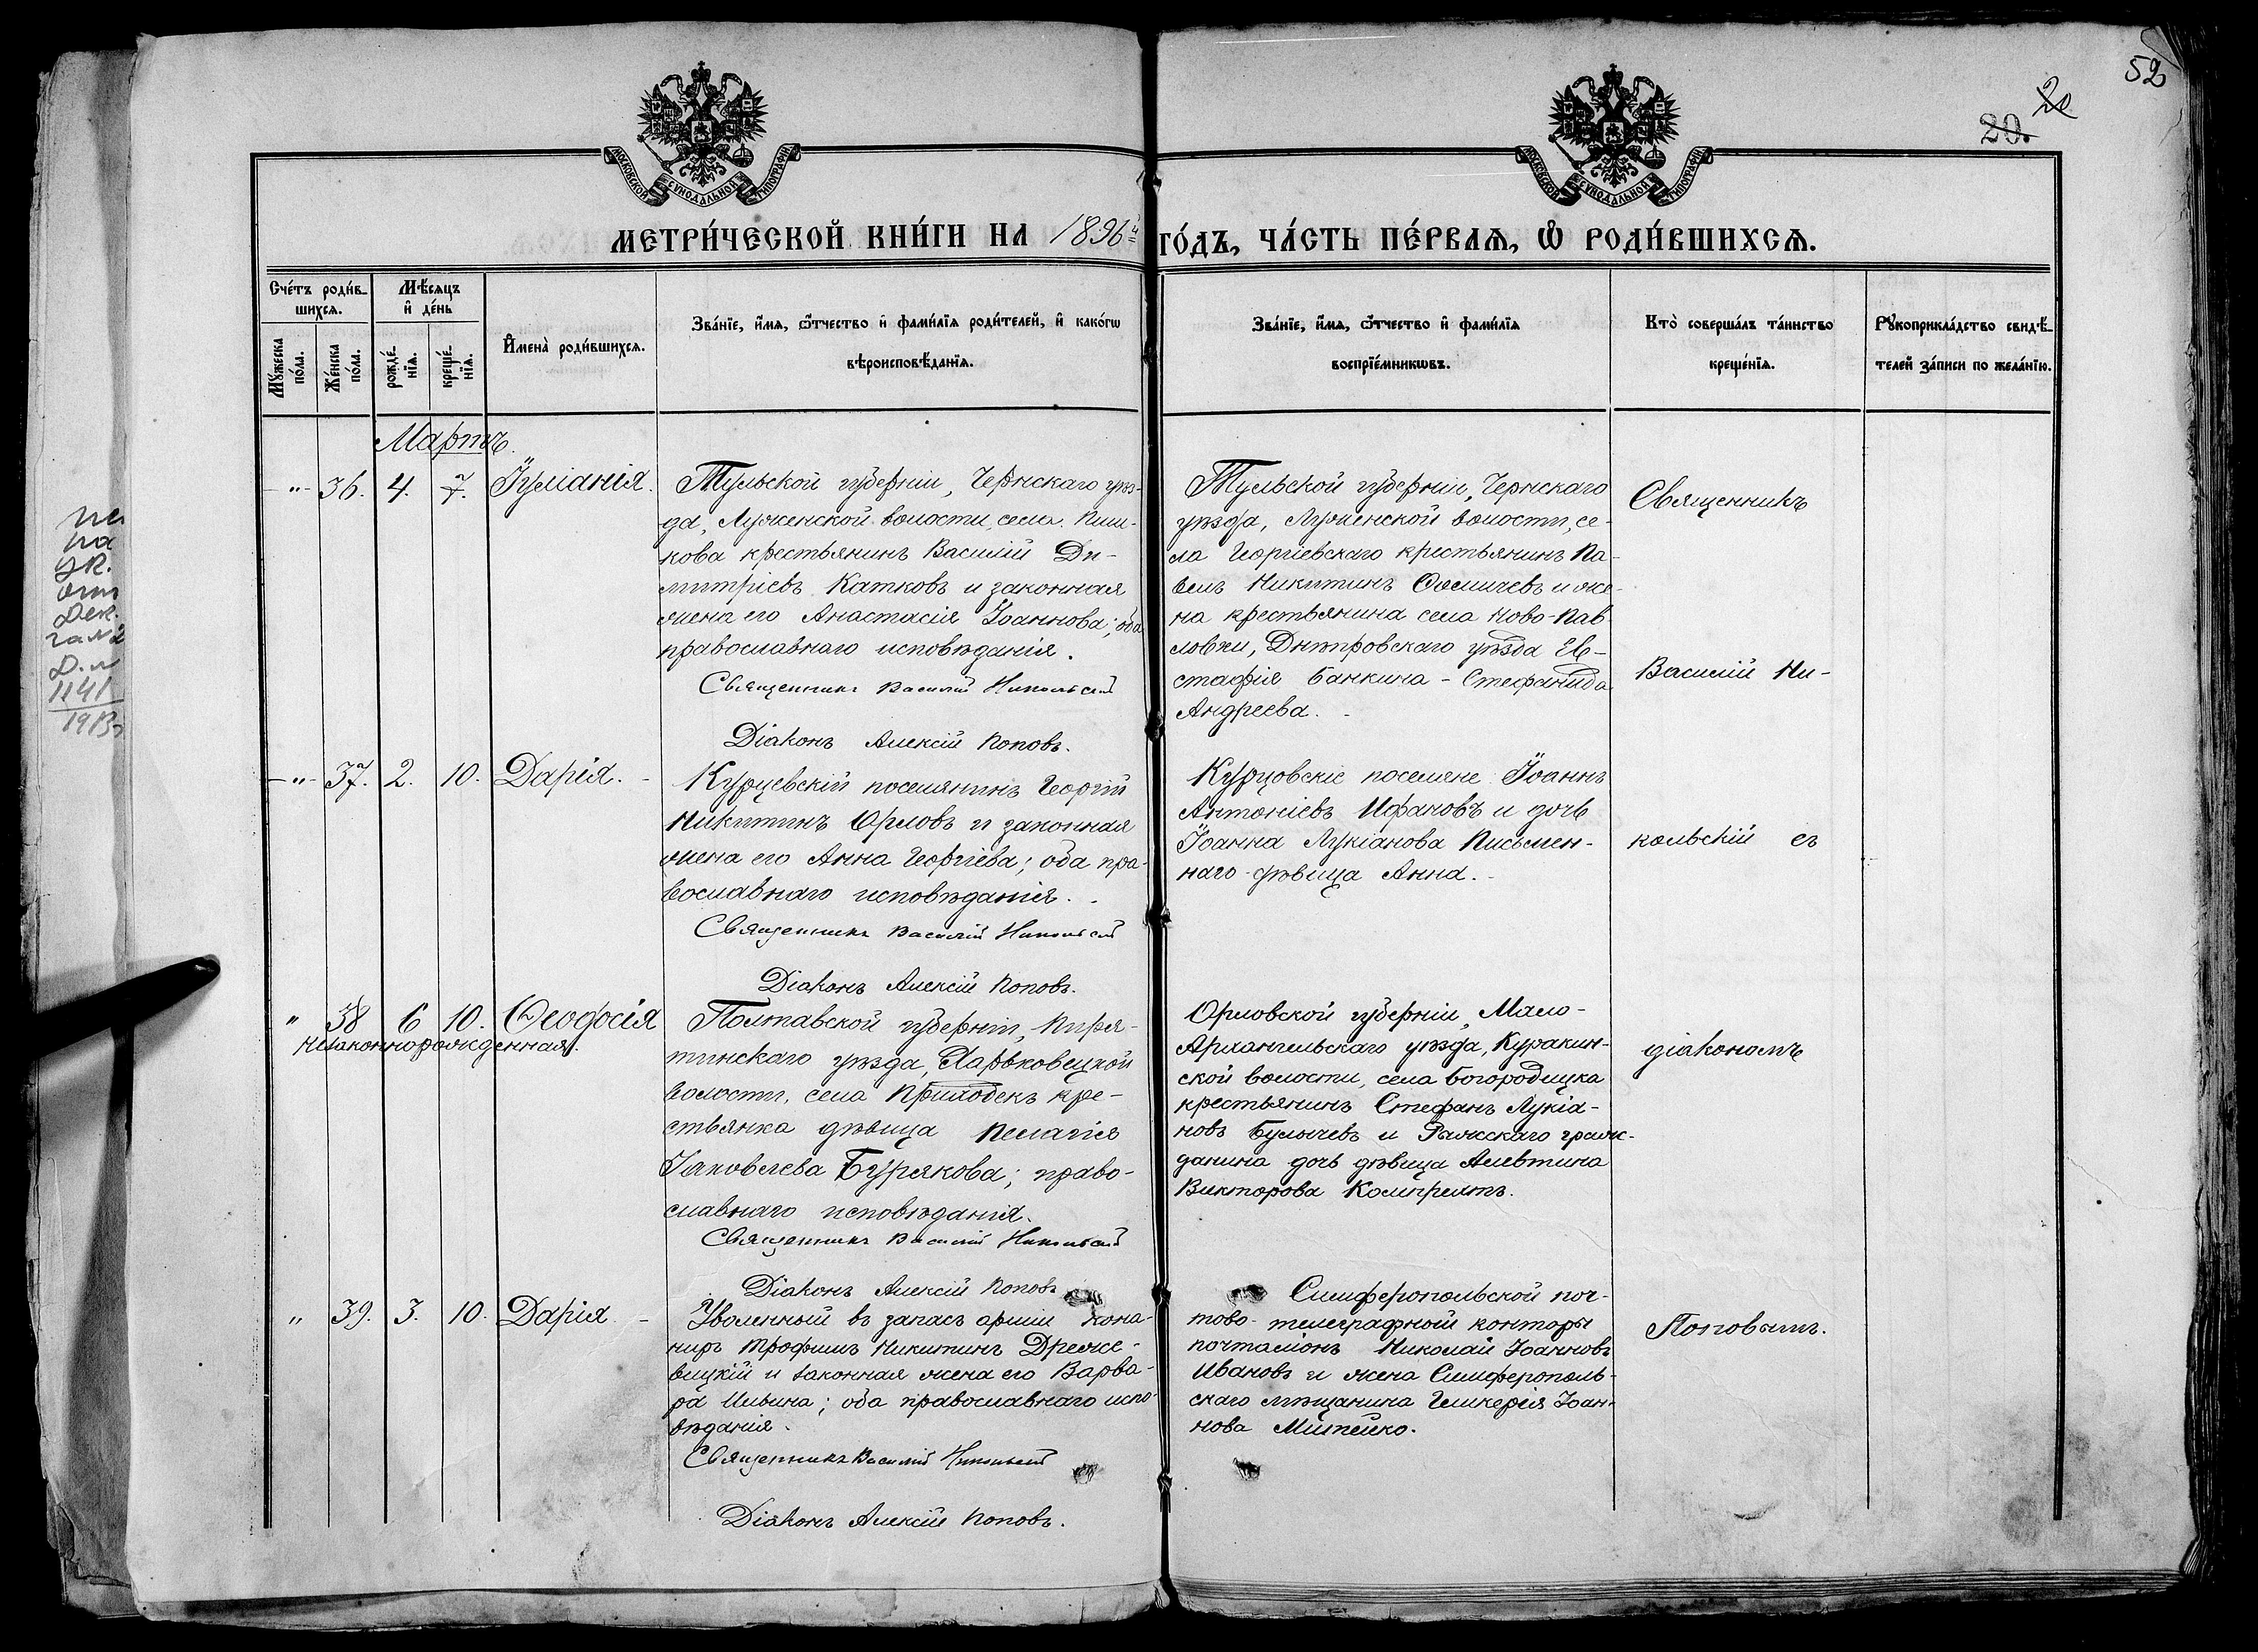 52
20.
20
МОСКОВСКОЙ СѴНОДАЛЬНОЙ ТИПОГРАФІИ
МОСКОВСКОЙ СѴНОДАЛЬНОЙ ТИПОГРАФІИ
МЕТРИ́ЧЕСКОЙ КНИ́ГИ НА 1896й ГО́ДЪ, ЧА́СТЬ ПЕ́РВАѦ, Ѡ РОДИ́ВШИХСѦ.
Сче́тъ роди́в-
шихсѧ.
Мѣ́сѧцъ
и҆ де́нь
Мꙋ́жеска
по́ла.
Же́нска
по́ла.
рожде́-
нїѧ.
креще́-
нїѧ.
И҆мена̀ роди́вшихсѧ.
Зва́нїе, и҆́мѧ, ѻ҆́тчество и҆ фами́лїѧ роди́телей, и҆ како́гѡ
вѣроисповѣ́данїѧ.
Зва́нїе, и҆́мѧ, ѻ҆́тчество и҆ фами́лїѧ
воспрїе́мникѡвъ.
Кто̀ соверша́лъ та́инство
креще́нїѧ.
Рꙋкоприкла́дство свидѣ́-
телей за́писи по жела́нїю.
Мартъ.
-"- 36. 4. 7. Іуліанія.
Тульской губерніи, Чернскаго уѣз-
да, Луженской волости, села Пиш-
кова крестьянинъ Василій Ди-
митріевъ Катковъ и законная
жена его Анастасія Іоаннова; оба
православнаго исповѣданія.
Священникъ Василій Никольскій
Діаконъ Алексій Поповъ.
Тульской губерніи, Чернскаго
уѣзда, Луженской волости, се-
ла Георгіевскаго крестьянинъ Па-
велъ Никитинъ Ѳомичевъ и же-
на крестьянина села Ново-Пав-
ловки, Днѣпровскаго уѣзда Ев-
стафія Банкина - Стефанида
Андреева.
Священникъ
Василій Ни-
кольскій съ
діакономъ
Поповымъ.
-"- 37. 2. 10. Дарія.
Курцевскій поселянинъ Георгій
Никитинъ Орловъ и законная
жена его Анна Георгіева; оба пра-
вославнаго исповѣданія.
Священникъ Василій Никольскій
Діаконъ Алексій Поповъ.
Курцовскіе поселяне Іоаннъ
Антоніевъ Ифановъ и дочь
Іоанна Лукіанова Письмен-
наго - дѣвица Анна.
" 38 6 10. Ѳеодосія
незаконнорожденная.
Полтавской губерніи, Пиря-
тинскаго уѣзда, Харьковецкой
волости, села Приходекъ кре-
стьянка дѣвица Пелагія
Іаковлева Бурякова; право-
славнаго исповѣданія.
Священникъ Василій Никольскій
Діаконъ Алексій Поповъ
Орловской губерніи, Мало-
Архангельскаго уѣзда, Куракин-
ской волости, села Богородицка
крестьянинъ Стефанъ Лукіа-
новъ Булычевъ и Ряжскаго граж-
данина дочь дѣвица Алевтина
Викторова Компрехтъ.
" 39. 3. 10. Дарія
Уволенный въ запасъ арміи кано-
ниръ Трофимъ Никитинъ Дреже-
вицкій и законная жена его Варва-
ра Ильина; оба православнаго испо-
вѣданія.
Священникъ Василій Никольскій
Діаконъ Алексій Поповъ.
Симферопольской поч-
тово-телеграфной конторы
почталіонъ Николай Іоанновъ
Ивановъ и жена Симферополь-
скаго мѣщанина Гликерія Іоан-
нова
1141
1913